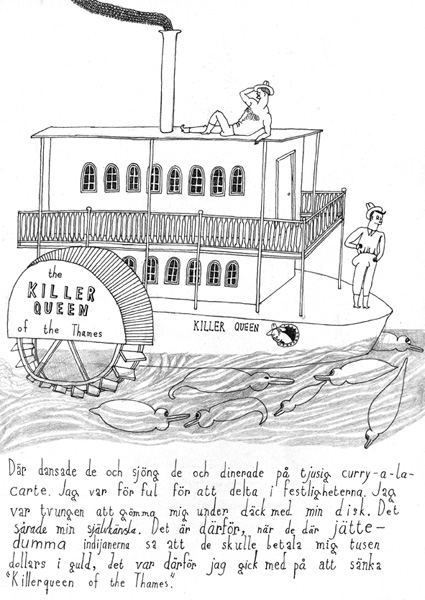 the
KILLER
QUEEN
of the Thames
KILLER QUEEN
Där dansade de och sjöng de och dinerade på tjusig curry-a-la-
carte. Jag var för ful för att delta i festligheterna. Jag
var tvungen att gömma mig under däck med min disk. Det
sårade min självkänsla. Det är därför, när de där jätte-
dumma indijanerna sa att de skulle betala mig tusen
dollars i guld, det var därför jag gick med på att sänka
"Killerqueen of the Thames".